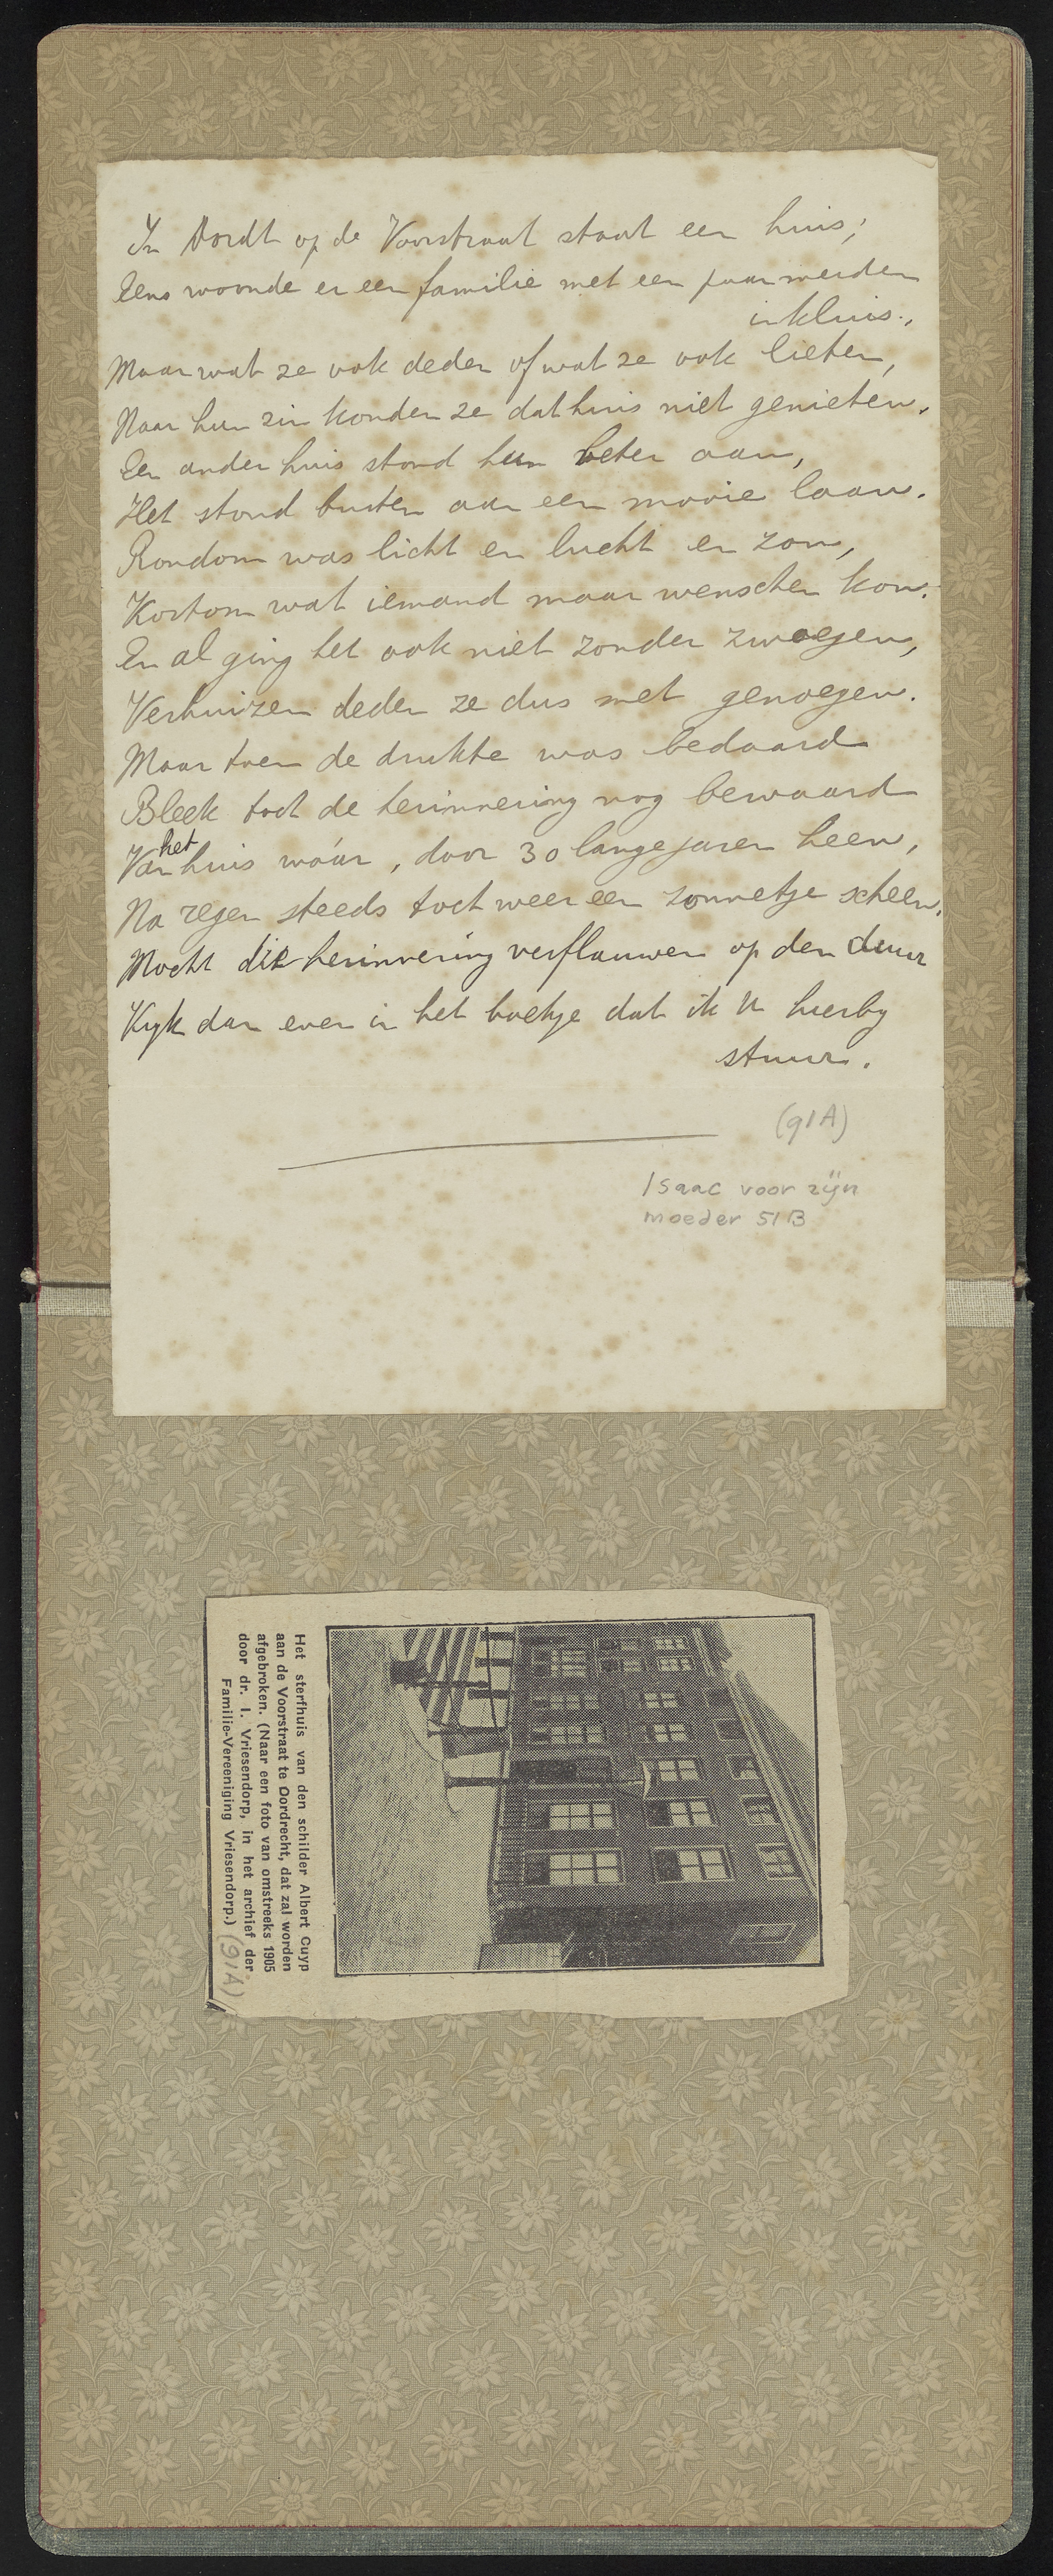 In Dordt op de Voorstraat staat een huis;
Eens woonde er een familie met een paar meiden
inkluis.,
Maar wat ze ook deden of wat ze ook lieten,
Naar hun zin konden ze dat huis niet genieten.
Een ander huis stond hun beter aan,
Het stond buiten aan een mooie laan.
Rondom was licht en lucht en zon,
Kortom wat iemand maar wenschen kon.
En al ging het ook niet zonder zwoegen,
Verhuizen deden ze dus met genoegen.
Maar toen de drukte was bedaard
Bleek toch de herinnering nog bewaard
Van het huis wáár, door 30 lange jaren heen,
Na regen steeds toch weer een zonnetje scheen.
Mocht die herinnering verflauwen op den duur
Kyk dan even in het boekje dat ik U hierby
stuur.
(91A)
Isaac voor zijn
moeder 51B
Het sterfhuis van den schilder Albert Cuyp
aan de Voorstraat te Dordrecht, dat zal worden
afgebroken. (Naar een foto van omstreeks 1905
door dr. I. Vriesendorp, in het archief der
Familie-Vereeniging Vriesendorp.) (91A)